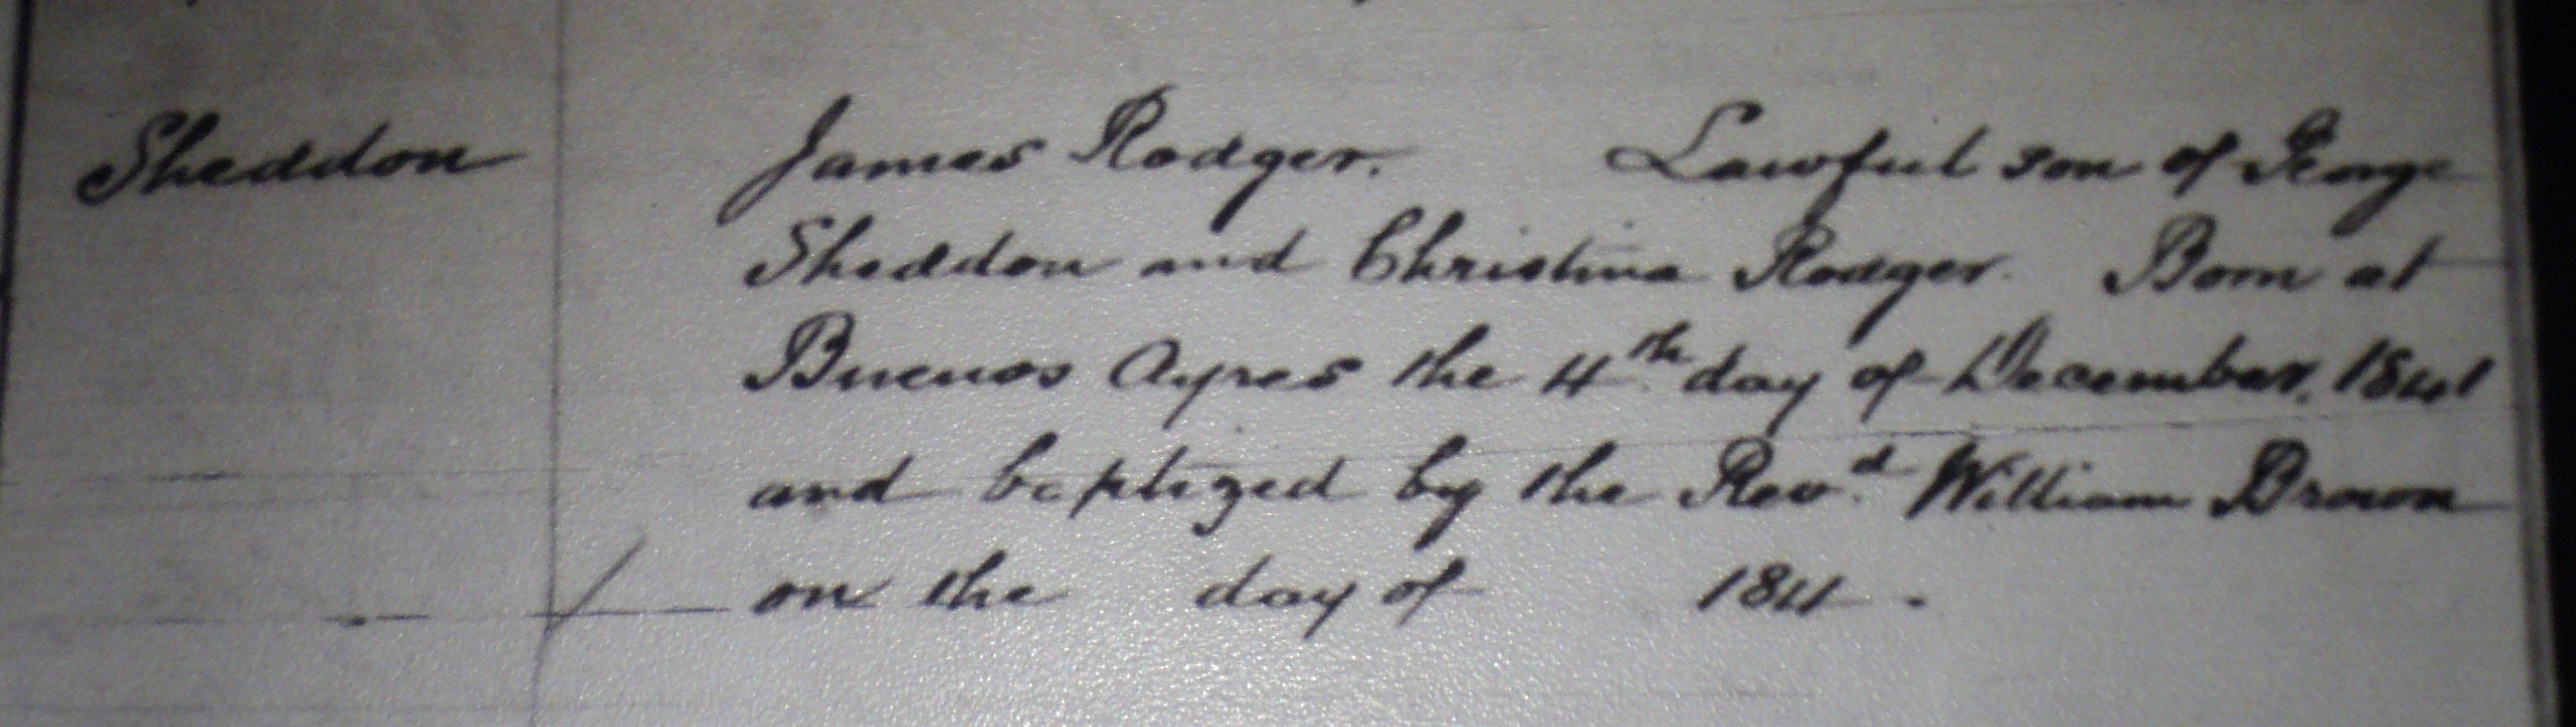 Sheddon James Rodger. Lawful son of George
Sheddon and Christina Rodger. Born at
Buenos Ayres the 4th day of December, 1841
and baptized by the Revd. William Brown
on the day of 184 .